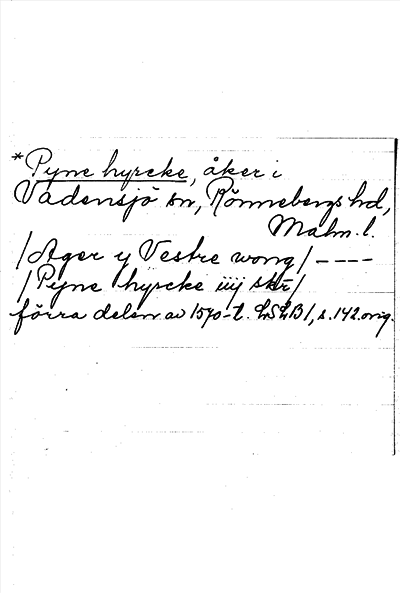 *Pyne hyrcke, åker i
Vadensjö sn, Rönnebergs hd,
Malm. l.
/Ager y Vestre wong/ ----
/Pyne hyrcke iiij skr/
förra delen av 1570-t. LSLB 1, s. 142 orig.